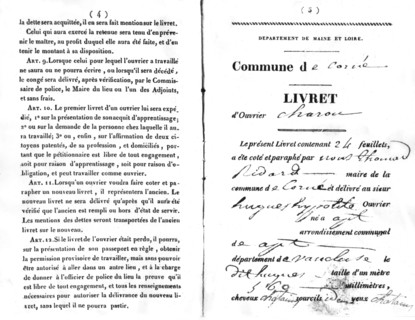 ( 4 )
la dette sera acquittée, il en sera fait mention sur le livret.
Celui qui aura exercé la retenue sera tenu d'en préve-
nir le maître, au profit duquel elle aura été faite, et d'en
tenir le montant à sa disposition.
ART. 9. Lorsque celui pour lequel l'ouvrier a travaillé
ne saura ou ne pourra écrire, ou lorsqu'il sera décédé,
le congé sera délivré, après vérification, par le Commis-
saire de police, le Maire du lieu ou l'un des Adjoints,
et sans frais.
ART. 10. Le premier livret d'un ouvrier lui sera expé-
dié, 1° sur la présentation de son acquit d'apprentissage;
2° ou sur la demande de la personne chez laquelle il au-
ra travaillé; 3° ou, enfin, sur l'affirmation de deux ci-
toyens patentés, de sa profession, et domiciliés, por-
tant que le pétitionnaire est libre de tout engagement,
soit pour raison d'apprentissage, soit pour raison d'o-
bligation, et peut travailler comme ouvrier.
ART. 11. Lorsqu'un ouvrier voudra faire coter et pa-
rapher un nouveau livret, il représentera l'ancien. Le
nouveau livret ne sera délivré qu'après qu'il aura été
vérifié que l'ancien est rempli ou hors d'état de servir.
Les mentions des dettes seront transportées de l'ancien
livret sur le nouveau.
ART. 12. Si le livret de l'ouvrier était perdu, il pourra,
sur la présentation de son passeport en règle, obtenir
la permission provisoire de travailler, mais sans pouvoir
être autorisé à aller dans un autre lieu, et à la charge
de donner à l'officier de police du lieu la preuve qu'il
est libre de tout engagement, et tous les renseignements
nécessaires pour autoriser la délivrance du nouveau li-
vret, sans lequel il ne pourra partir.
( 5 )
DÉPARTEMENT DE MAINE ET LOIRE.
Commune de Corné
LIVRET
d'Ouvrier charon
Le présent Livret contenant 24 feuillets,
a été coté et paraphé par nous thomas
maire de la
commune de Corné et délivré au sieur
hugues hypolithe Ouvrier
né à apt
arrondissement communal
de apt
département de vaucluse
dit hugues taille d'un mètre
millimètres,
cheveux sourcils yeux